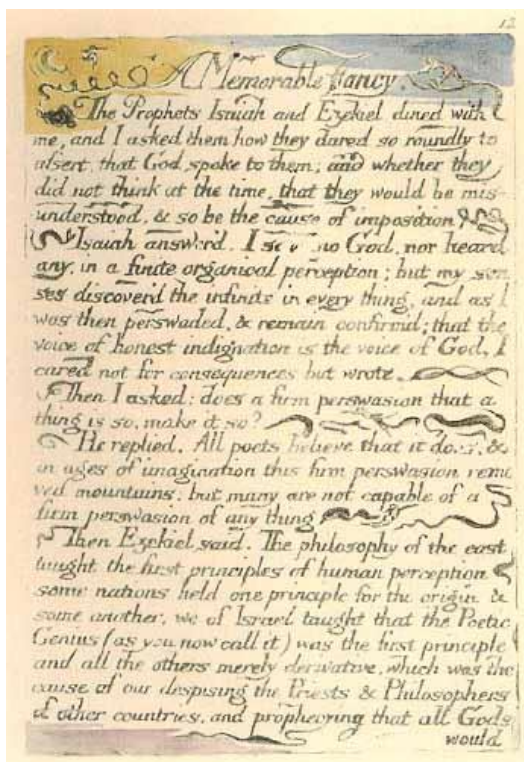 12
A Memorable Fancy.
The Prophets Isaiah and Ezekiel dined with
me, and I asked them how they dared so roundly to
assert, that God spoke to them; and whether they
did not think at the time, that they would be mis-
understood, & so be the cause of imposition
Isaiah answer'd. I saw no God, nor heard
any, in a finite organical perception; but my sen
ses discover'd the infinite in every thing, and as I
was then perswaded, & remain confirm'd; that the
voice of honest indignation is the voice of God, I
cared not for consequences but wrote.
Then I asked: does a firm perswasion that a
thing is so, make it so?
He replied. All poets believe that it does, &
in ages of imagination this firm perswasion remo
ved mountains; but many are not capable of a
firm perswasion of any thing
Then Ezekiel said. The philosophy of the east
taught the first principles of human perception
some nations held one principle for the origin &
some another, we of Israel taught that the Poetic
Genius (as you now call it) was the first principle
and all the others merely derivative, which was the
cause of our despising the Priests & Philosophers
of other countries, and prophecying that all Gods
would